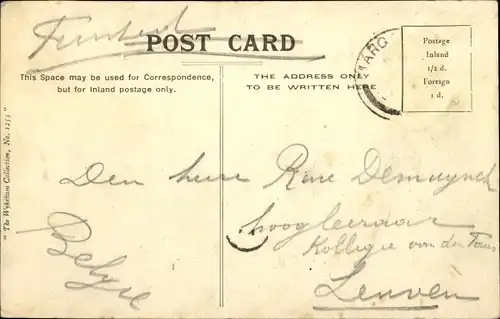 POST CARD
This Space may be used for Correspondence,
but for Inland postage only.
THE ADDRESS ONLY
TO BE WRITTEN HERE
Postage
Inland
1/2 d.
Foreign
1 d.
MARG
" The Wykeham Collection, No. 1553 "
Den heer Rene Demuynck
hoogleeraar
Kollegie van den
Leuven
Belgie